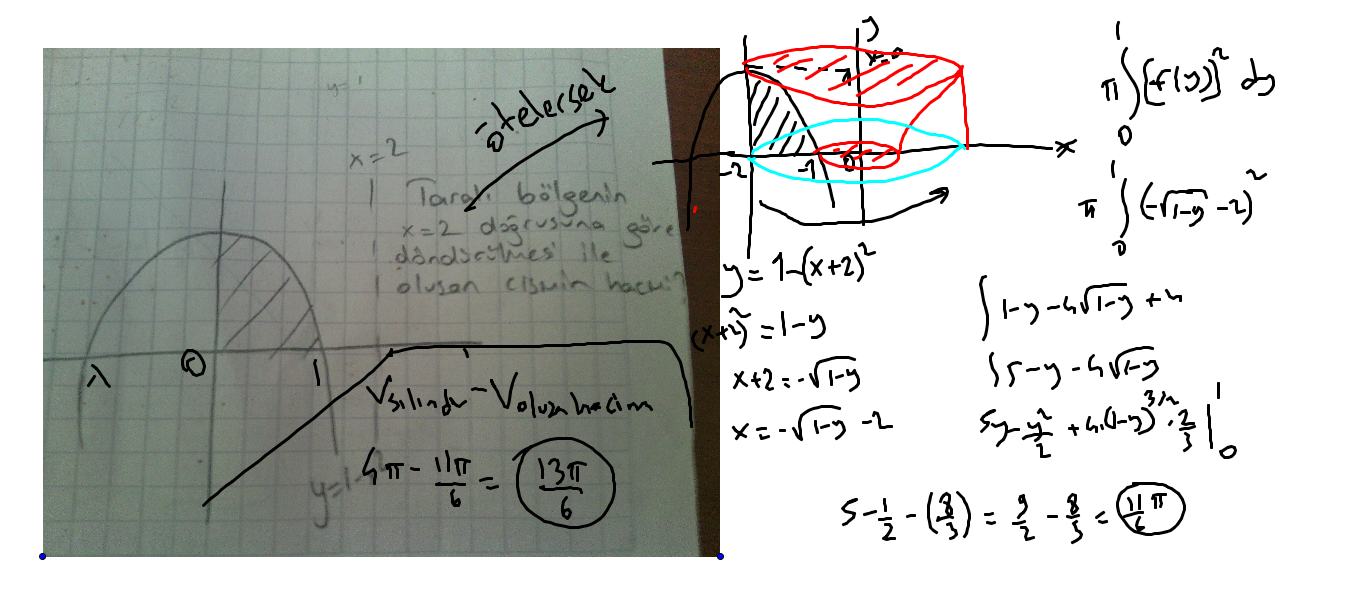 y=1
ötelersek
x=2
Taralı bölgenin
x=2 doğrusuna göre
döndürülmesi ile
oluşan cismin hacmi?
0
1
y=1-
Vsilindir - Voluşan hacim
4π - 11π/6 = 13π/6
y
x=0
1
-2
-1
0
x
y = 1-(x+2)²
(x+2)² = 1-y
x+2 = -√1-y
x = -√1-y -2
π ∫₀¹ [f(y)]² dy
π ∫₀¹ (-√1-y -2)²
∫ 1-y-4√1-y +4
∫ 5-y-4√1-y
5y - y²/2 + 4.(1-y)^3/2 . 2/3 |₀¹
5 - 1/2 - (8/3) = 9/2 - 8/3 = 11π/6